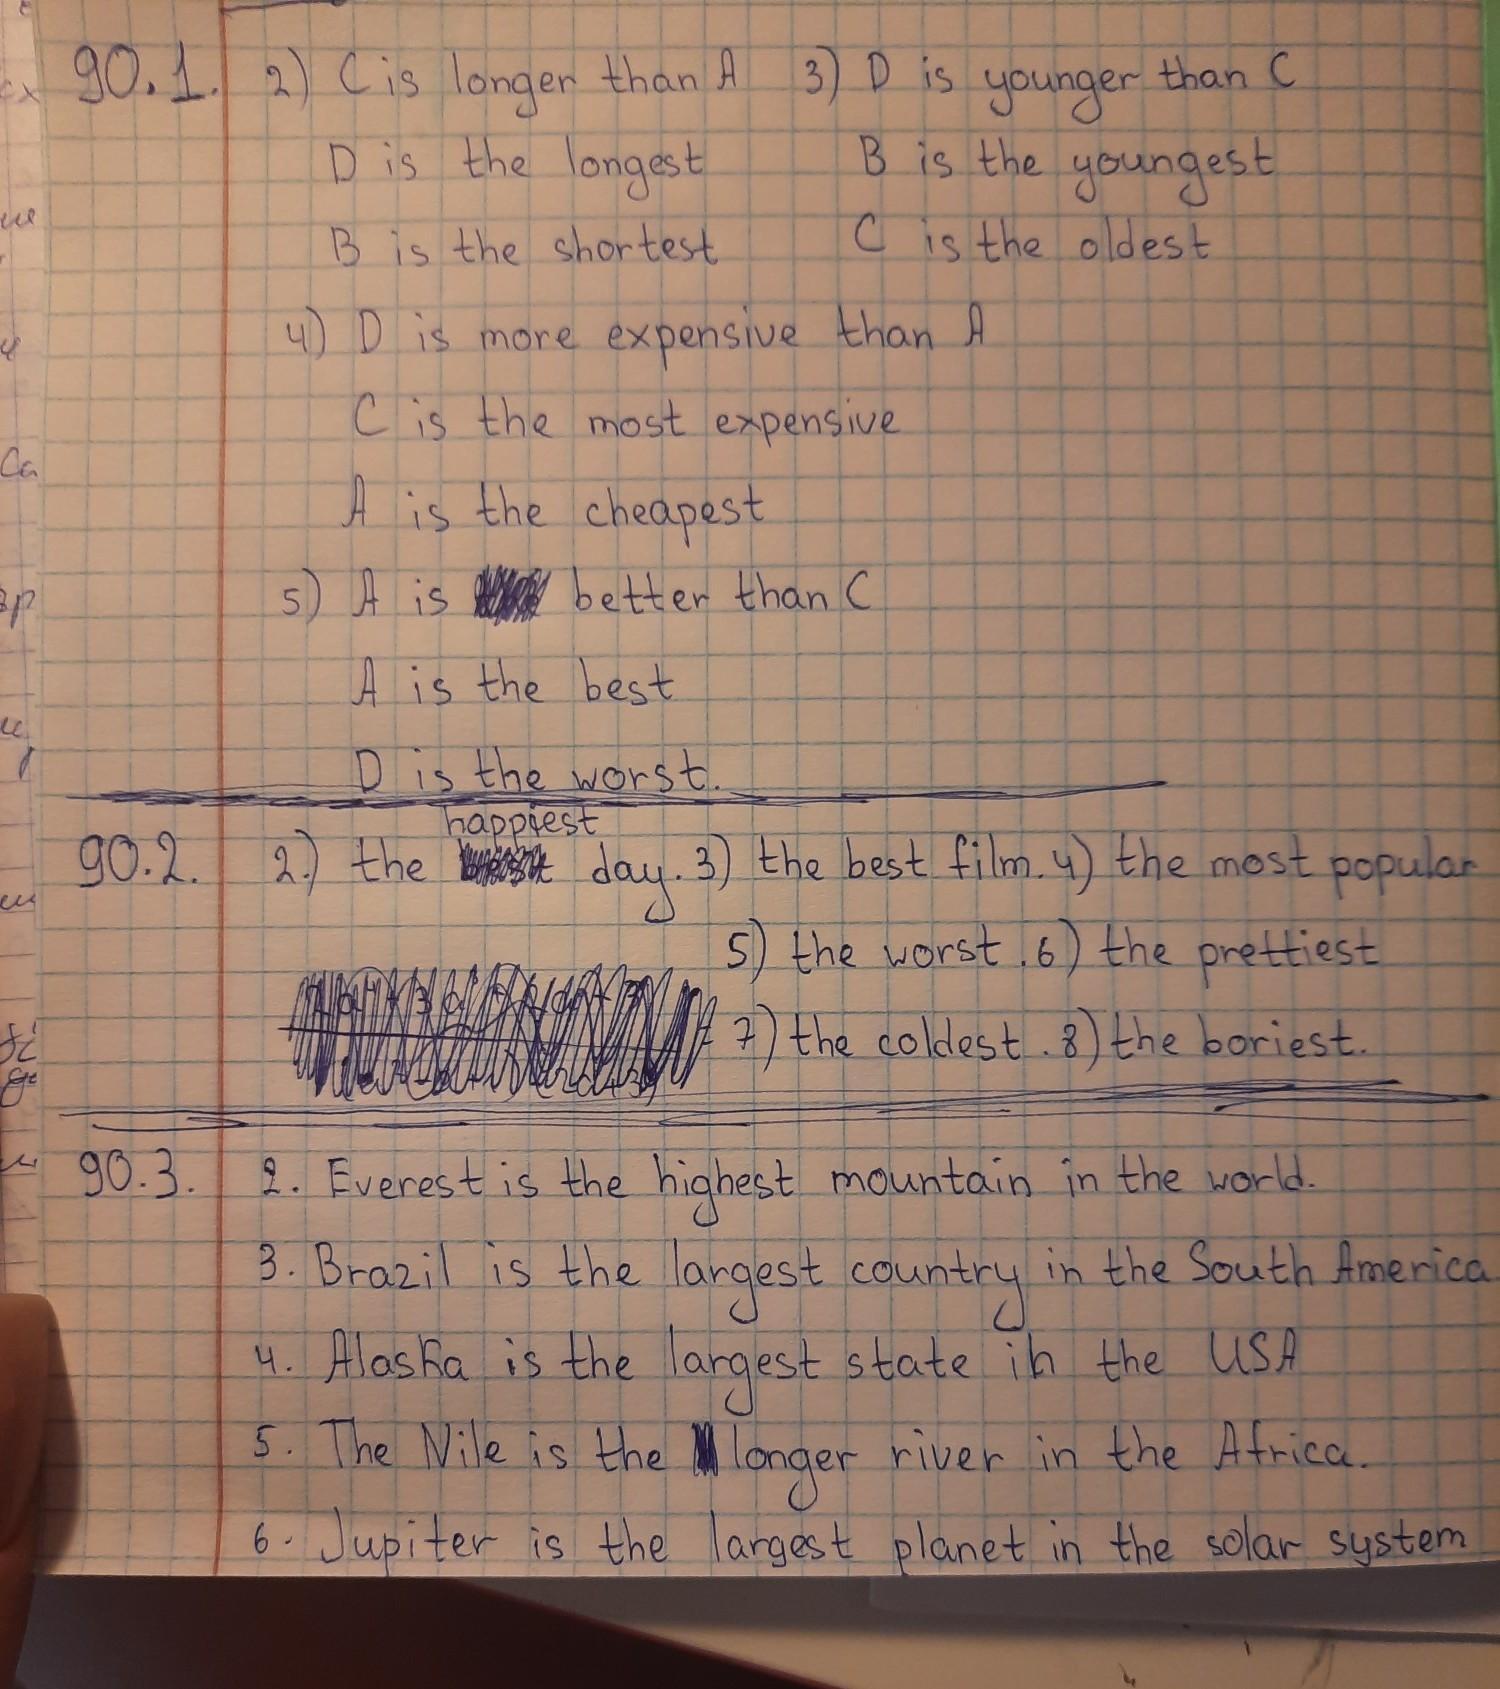 90.1. 2) C is longer than A 3) D is younger than C
D is the longest B is the youngest
B is the shortest C is the oldest
4) D is more expensive than A
C is the most expensive
A is the cheapest
5) A is better than C
A is the best
D is the worst.
happiest
90.2. 2.) the day. 3) the best film. 4) the most popular
5) the worst. 6) the prettiest
7) the coldest. 8) the boriest.
90.3. 2. Everest is the highest mountain in the world.
3. Brazil is the largest country in the South America
4. Alaska is the largest state in the USA
5. The Nile is the longer river in the Africa.
6. Jupiter is the largest planet in the solar system